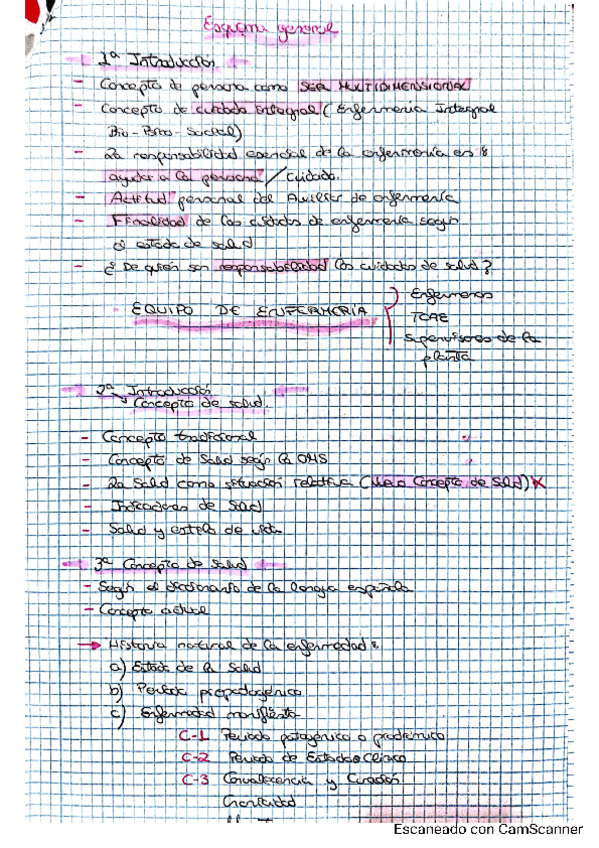 Esquema general
1ª Introducción
- Concepto de persona como SER MULTIDIMENSIONAL
- Concepto de cuidado Integral (Enfermería Integral
Bio-Psico-Social)
- La responsabilidad esencial de la enfermería es:
ayudar a la persona / cuidado.
- Actitud personal del Auxiliar de enfermería
- Finalidad de los cuidados de enfermería según
el estado de salud
- ¿De quién son responsabilidad los cuidados de salud?
EQUIPO DE ENFERMERÍA
Enfermeros
TCAE
Supervisores de la
planta
2ª Introducción
Concepto de salud
- Concepto tradicional
- Concepto de Salud según la OMS
- La Salud como situación relativa ( Concepto de Salud) x
- Indicadores de Salud
- Salud y estilo de vida
3ª Concepto de salud
- Según el diccionario de la lengua española
- Concepto actual
→ Historia natural de la enfermedad:
a) Estado de la Salud
b) Periodo prepatogénico
c) Enfermedad manifiesta
C-1 Periodo patogénico o prodrómico
C-2 Periodo de Estado o Clínico
C-3 Convalecencia y Curación
Cronicidad
Escaneado con CamScanner